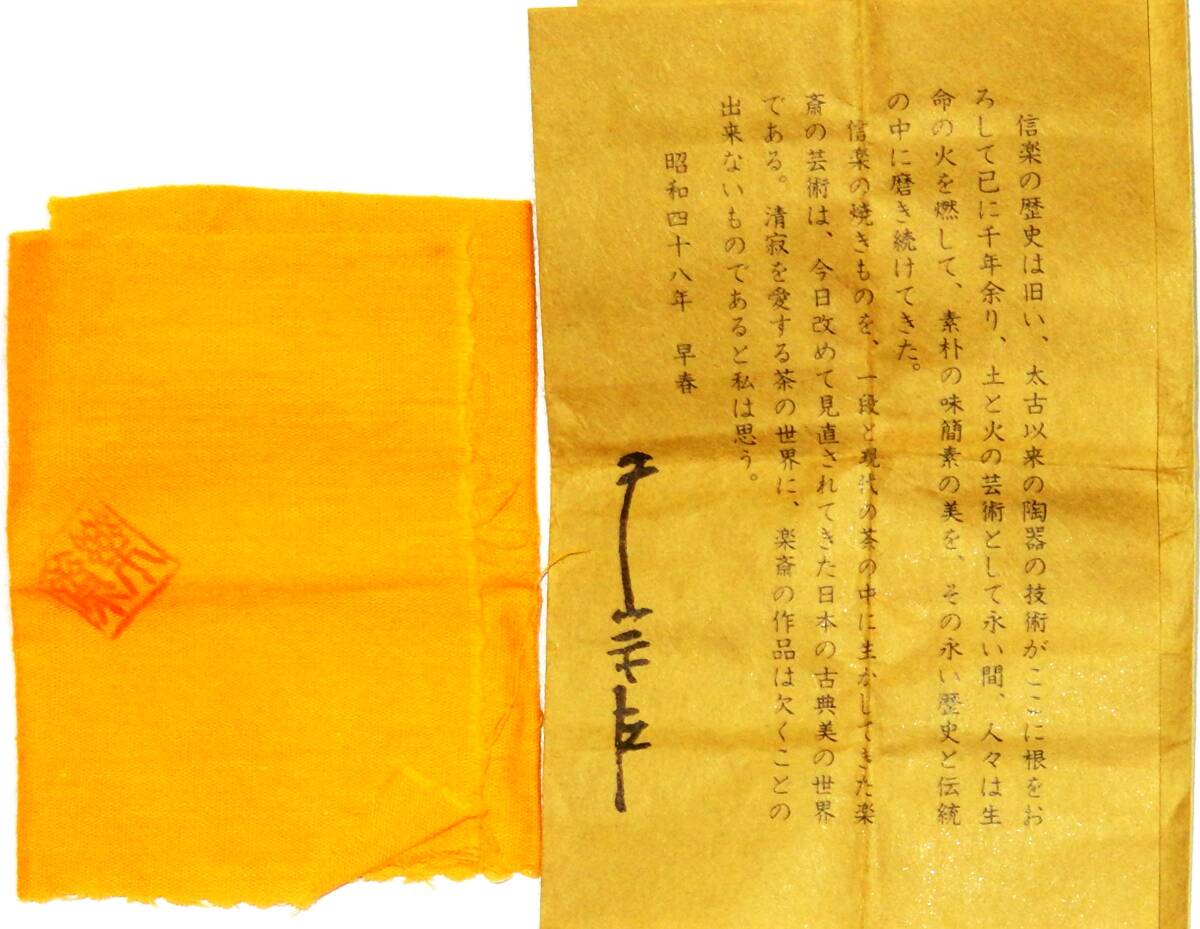 信楽の歴史は旧い、太古以来の陶器の技術がここに根をお
ろして已に千年余り、土と火の芸術として永い間、人々は生
命の火を燃して、素朴の味簡素の美を、その永い歴史と伝統
の中に磨き続けてきた。
信楽の焼きものを、一段と現代の茶の中に生かしてきた楽
斎の芸術は、今日改めて見直されてきた日本の古典美の世界
である。清寂を愛する茶の世界に、楽斎の作品は欠くことの
出来ないものであると私は思う。
昭和四十八年 早春